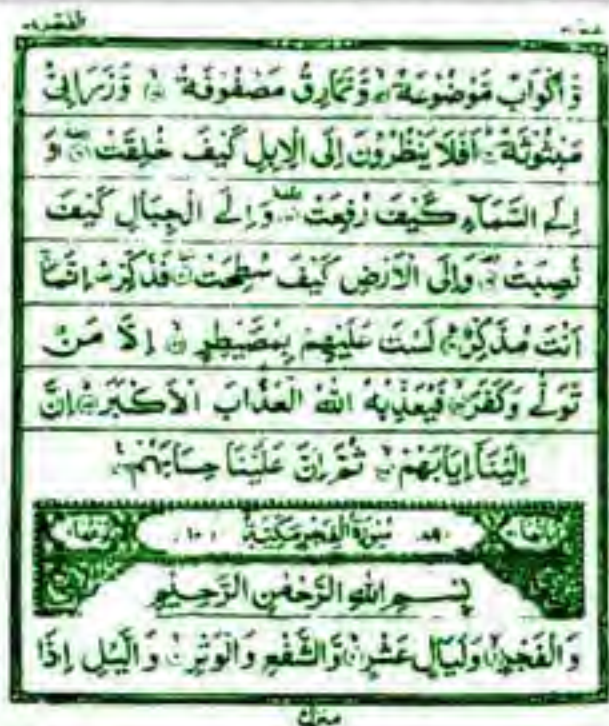 وَّاَكْوَابٌ مَّوْضُوْعَةٌ وَّنَمَارِقُ مَصْفُوْفَةٌ وَّزَرَابِیُّ
مَبْثُوْثَةٌ اَفَلَا یَنْظُرُوْنَ اِلَى الْاِبِلِ كَیْفَ خُلِقَتْ وَ
اِلَى السَّمَآءِ كَیْفَ رُفِعَتْ وَاِلَى الْجِبَالِ كَیْفَ
نُصِبَتْ وَاِلَى الْاَرْضِ كَیْفَ سُطِحَتْ فَذَكِّرْ اِنَّمَاۤ
اَنْتَ مُذَكِّرٌ لَسْتَ عَلَیْهِمْ بِمُصَۜیْطِرٍ اِلَّا مَنْ
تَوَلّٰى وَكَفَرَ فَیُعَذِّبُهُ اللّٰهُ الْعَذَابَ الْاَكْبَرَ اِنَّ
اِلَیْنَاۤ اِیَابَهُمْ ثُمَّ اِنَّ عَلَیْنَا حِسَابَهُمْ
سُوْرَةُ الْفَجْرِ مَكِّیَّةٌ
بِسْمِ اللّٰهِ الرَّحْمٰنِ الرَّحِیْمِ
وَالْفَجْرِ وَلَیَالٍ عَشْرٍ وَّالشَّفْعِ وَالْوَتْرِ وَالَّیْلِ اِذَا